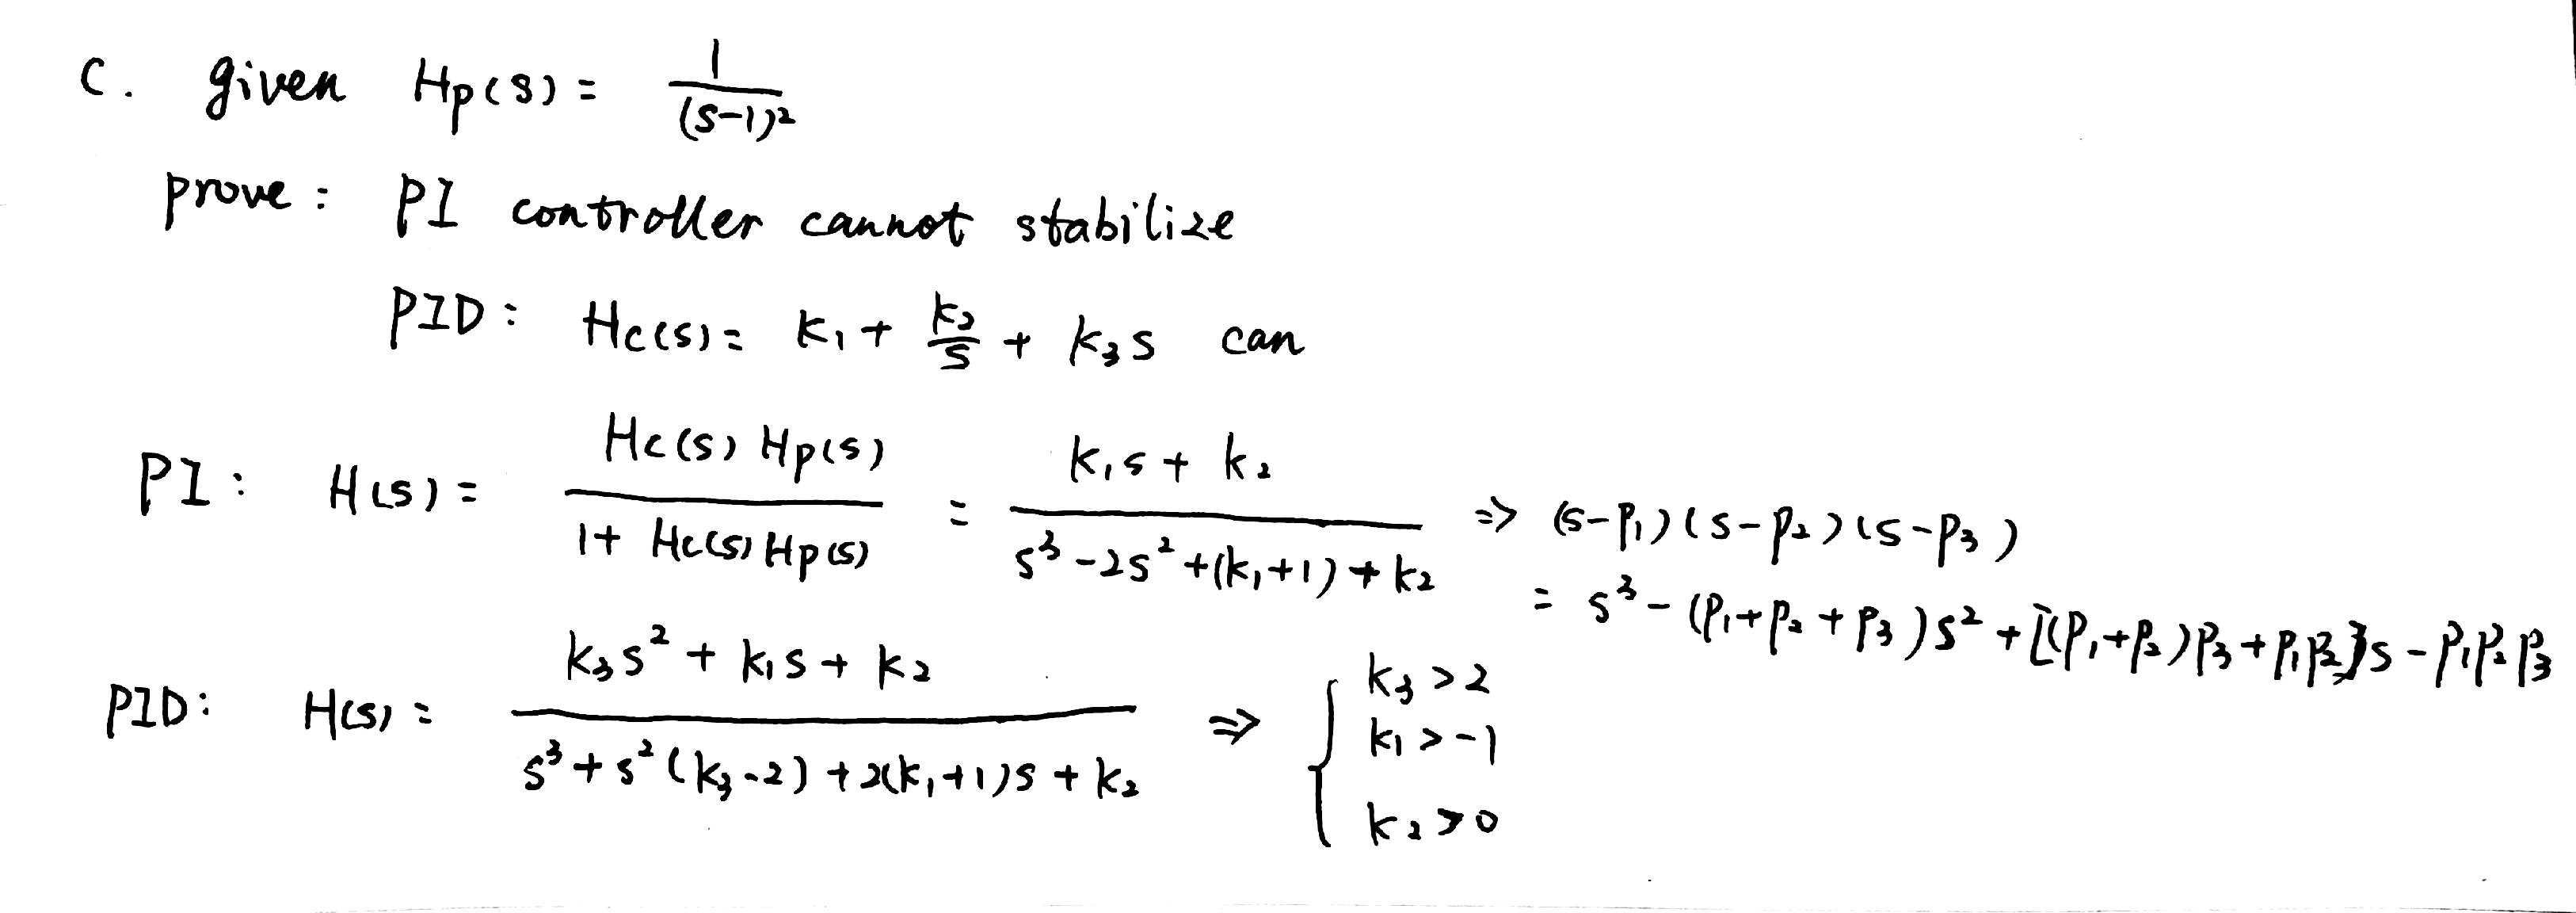 c. given Hp(s) = 1/(s-1)²
prove: PI controller cannot stabilize
PID: Hc(s) = k₁ + k₂/s + k₃s can
PI: H(s) = Hc(s) Hp(s) / (1 + Hc(s) Hp(s)) = (k₁s + k₂) / (s³ - 2s² + (k₁+1) + k₂) ⇒ (s-p₁)(s-p₂)(s-p₃)
= s³ - (p₁+p₂+p₃)s² + [(p₁+p₂)p₃+p₁p₂]s - p₁p₂p₃
PID: H(s) = (k₃s² + k₁s + k₂) / (s³ + s²(k₃-2) + 2(k₁+1)s + k₂) ⇒ { k₃>2
k₁>-1
k₂>0